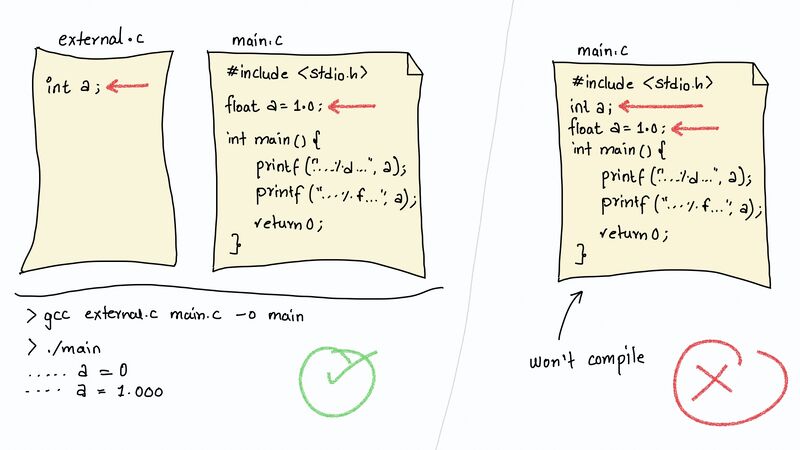 external.c
int a;
main.c
#include <stdio.h>
float a = 1.0;
int main() {
printf("...%d...", a);
printf("...%f...", a);
return 0;
}
> gcc external.c main.c -o main
> ./main
..... a = 0
.... a = 1.000
main.c
#include <stdio.h>
int a;
float a = 1.0;
int main() {
printf("...%d...", a);
printf("...%f...", a);
return 0;
}
won't compile